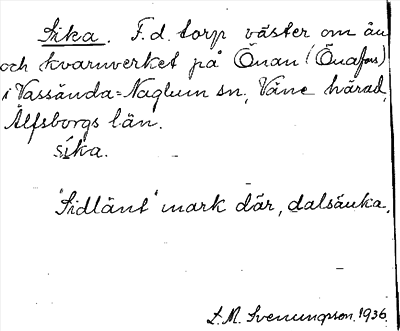 Sika. F.d. torp väster om ån
och kvarnverket på Önan (Önafors)
i Vassända-Naglum sn, Väne härad,
Älfsborgs län.
síka.
"Sidlänt" mark där, dalsänka.
L.M. Svenungsson 1936.